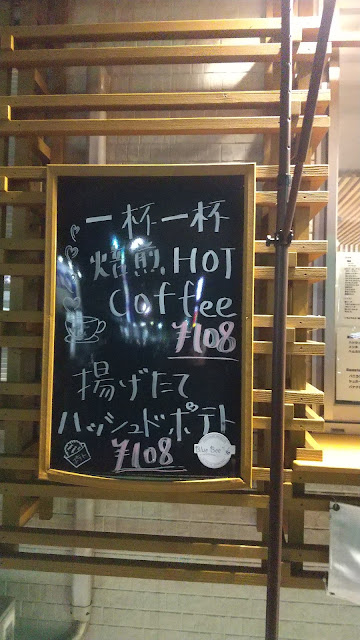 一杯一杯
焙煎 HOT
Coffee
¥108
揚げたて
ハッシュドポテト
¥108
Blue Bee's